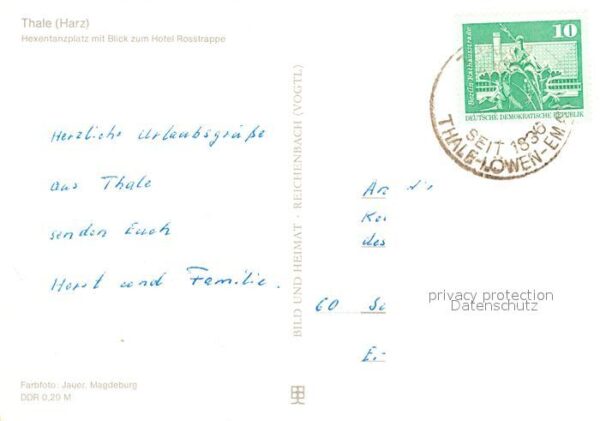 Thale (Harz)
Hexentanzplatz mit Blick zum Hotel Rosstrappe
10
Berlin Rathausstraße
DEUTSCHE DEMOKRATISCHE REPUBLIK
SEIT 1836
THALE-LÖWEN-EM
Herzliche Urlaubsgrüße
aus Thale
senden Euch
Horst und Familie.
BILD UND HEIMAT · REICHENBACH (VOGTL)
An di
des
60 So
E.-
privacy protection
Datenschutz
Farbfoto: Jauer, Magdeburg
DDR 0,20 M